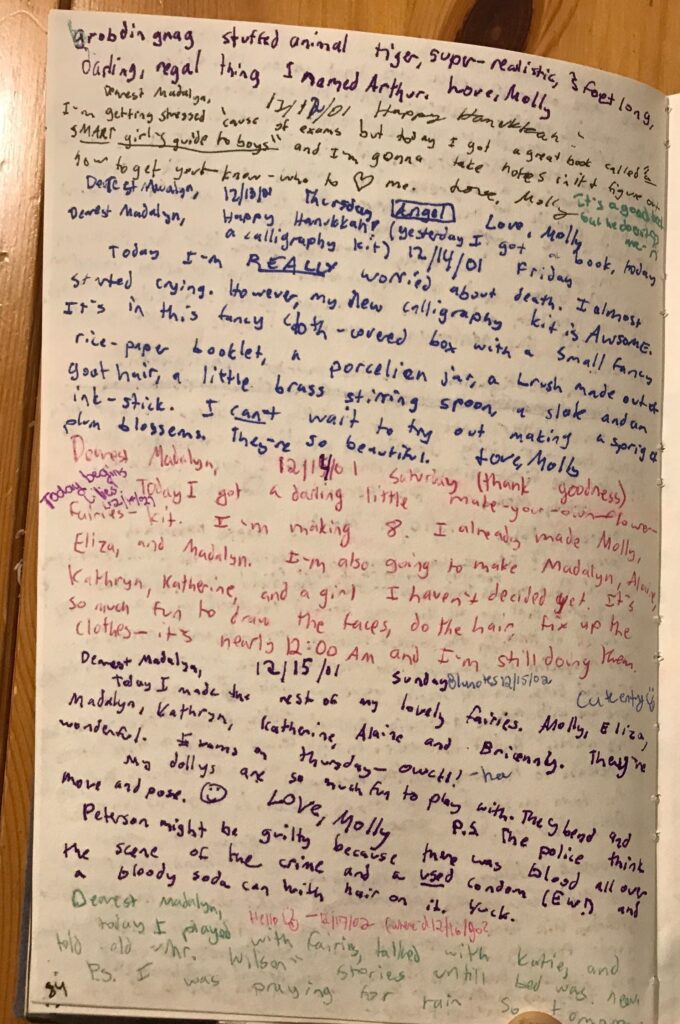 Brobdingnag stuffed animal tiger, super-realistic, 3 feet long,
darling, regal thing I named Arthur. Love, Molly
Dearest Madalyn, 12/12/01 Happy Hanukkah
I'm getting stressed 'cause of exams but today I got a great book called "a
SMART girl's guide to boys" and I'm gonna take notes in it & figure out
how to get you know-who to ♡ me. Love, Molly
It's a good book
but he doesn't ♡
me
Dearest Madalyn, 12/13/01 Thursday Angel Love, Molly
Dearest Madalyn, Happy Hanukkah! (yesterday I got a book, today
a calligraphy kit) 12/14/01 Friday
Today I'm REALLY worried about death. I almost
started crying. However, my new calligraphy kit is AWSOME.
It's in this fancy cloth-covered box with a small fancy
rice-paper booklet, a porcelien jar, a brush made out of
goat hair, a little brass stirring spoon, a slate and an
ink-stick. I can't wait to try out making a sprig of
plum blossems. They're so beautiful. Love, Molly
Dearest Madalyn, 12/14/01 Saturday (thank goodness)
Today begins
Today I got a darling little make-your-own-flower-
fairies-kit. I'm making 8. I already made Molly,
Eliza, and Madalyn. I'm also going to make Madalyn, Alaine,
Kathryn, Katherine, and a girl I haven't decided yet. It's
so much fun to draw the faces, do the hair, fix up the
clothes— it's nearly 12:00 AM and I'm still doing them.
Dearest Madalyn, 12/15/01 Sunday 12/15/02 Cute entry ☺
Today I made the rest of my lovely fairies. Molly, Eliza,
Madalyn, Kathryn, Katherine, Alaine and Briennly. They're
wonderful. Exams on thursday— owch! -ha
My dollys are so much fun to play with. They bend and
move and pose. ☺ LOVE, Molly P.S. The police think
Peterson might be guilty because there was blood all over
the scene of the crime and a used condom (Ew!) and
a bloody soda can with hair on it. Yuck.
Dearest Madalyn, Hello ☺ - 12/17/02
today I played with fairies, talked with Katie, and
told old "Mr. Wilson" stories untill bed was near
P.S. I was praying for rain so
84